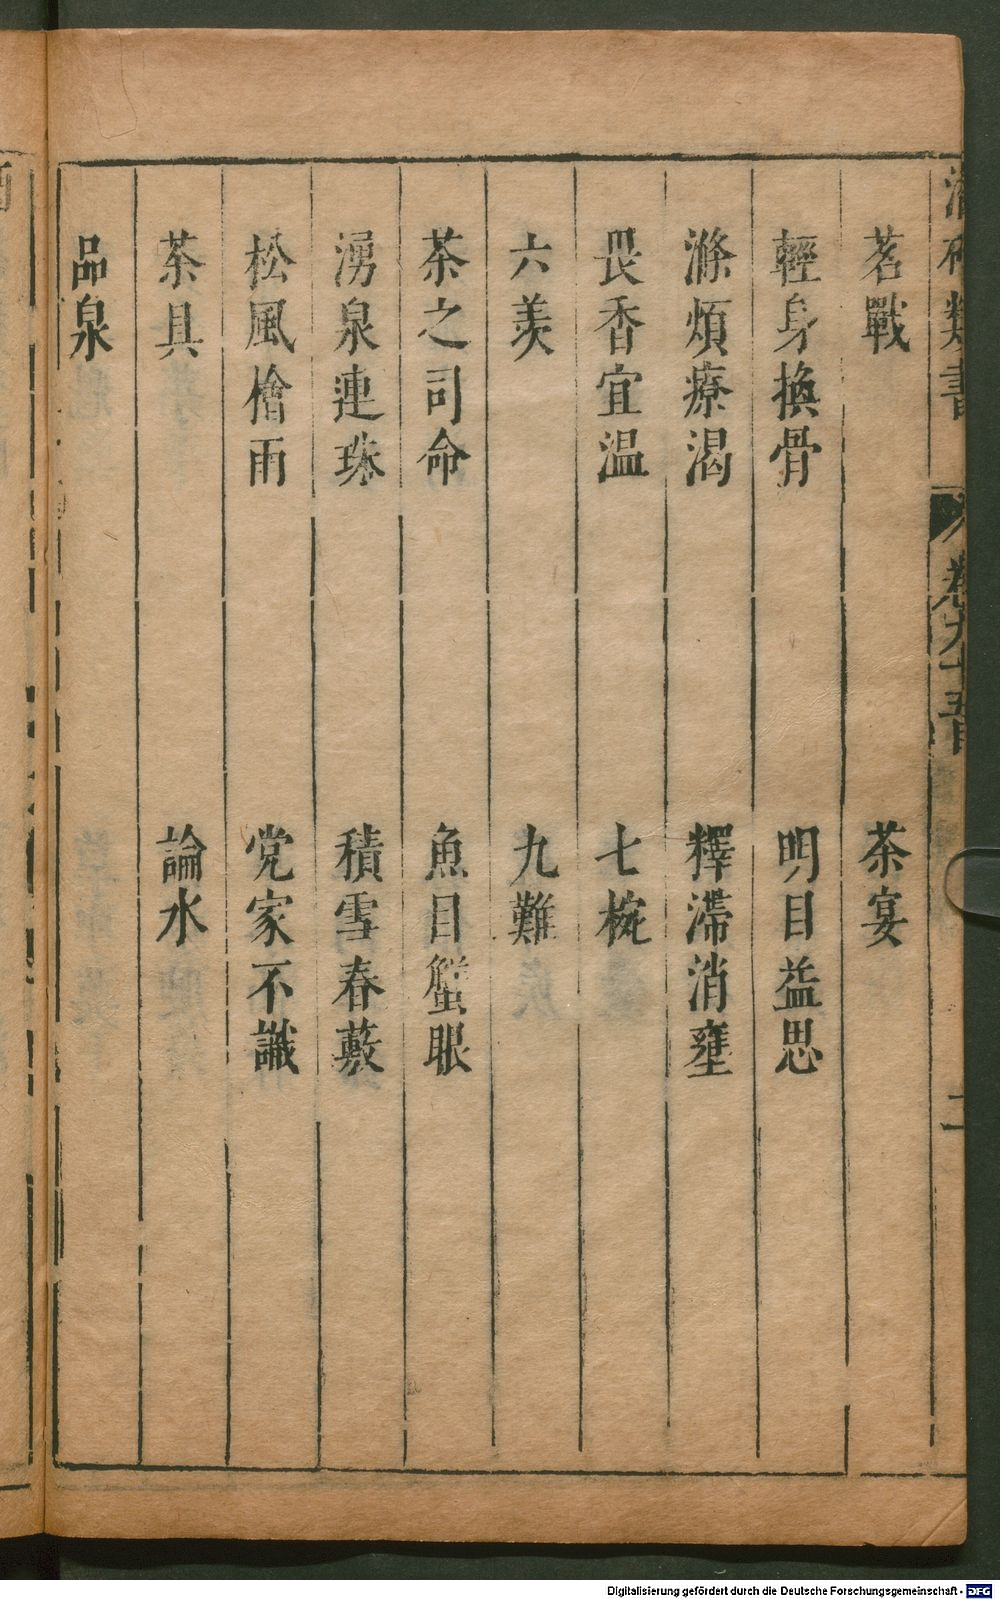 潛確類書 卷九十五目 二
茗戰 茶宴
輕身換骨 明目益思
滌煩療渴 釋滯消壅
畏香宜温 七椀
六羡 九難
茶之司命 魚目蟹眼
湧泉連珠 積雪春藪
松風檜雨 党家不識
茶具 論水
品泉
Digitalisierung gefördert durch die Deutsche Forschungsgemeinschaft - DFG